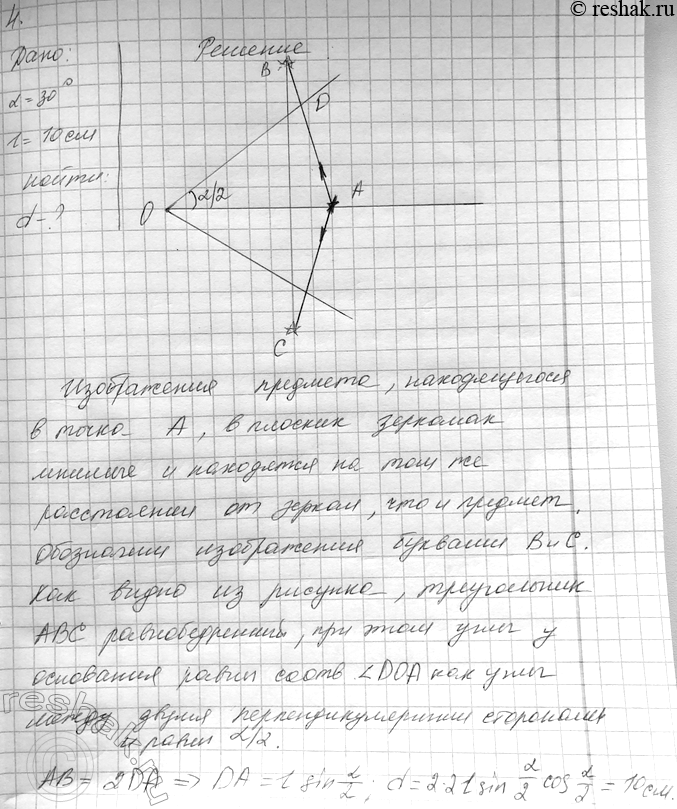 © reshak.ru
4.
Дано:
Решение
α = 30°
l = 10 см
найти:
d - ?
B
D
α/2
A
O
C
Изображения предмета, находящегося
в точке А, в плоских зеркалах
мнимые и находятся на том же
расстоянии от зеркал, что и предмет.
Обозначим изображения буквами В и С.
Как видно из рисунка, треугольник
АВС равнобедренный, при этом углы у
основания равны соотв. ∠DOA как углы
между двумя перпендикулярными сторонами
и равны α/2.
AB = 2DA ⇒ DA = l sin α/2; d = 2·2l sin α/2 cos α/2 = 10 см.
reshak.ru